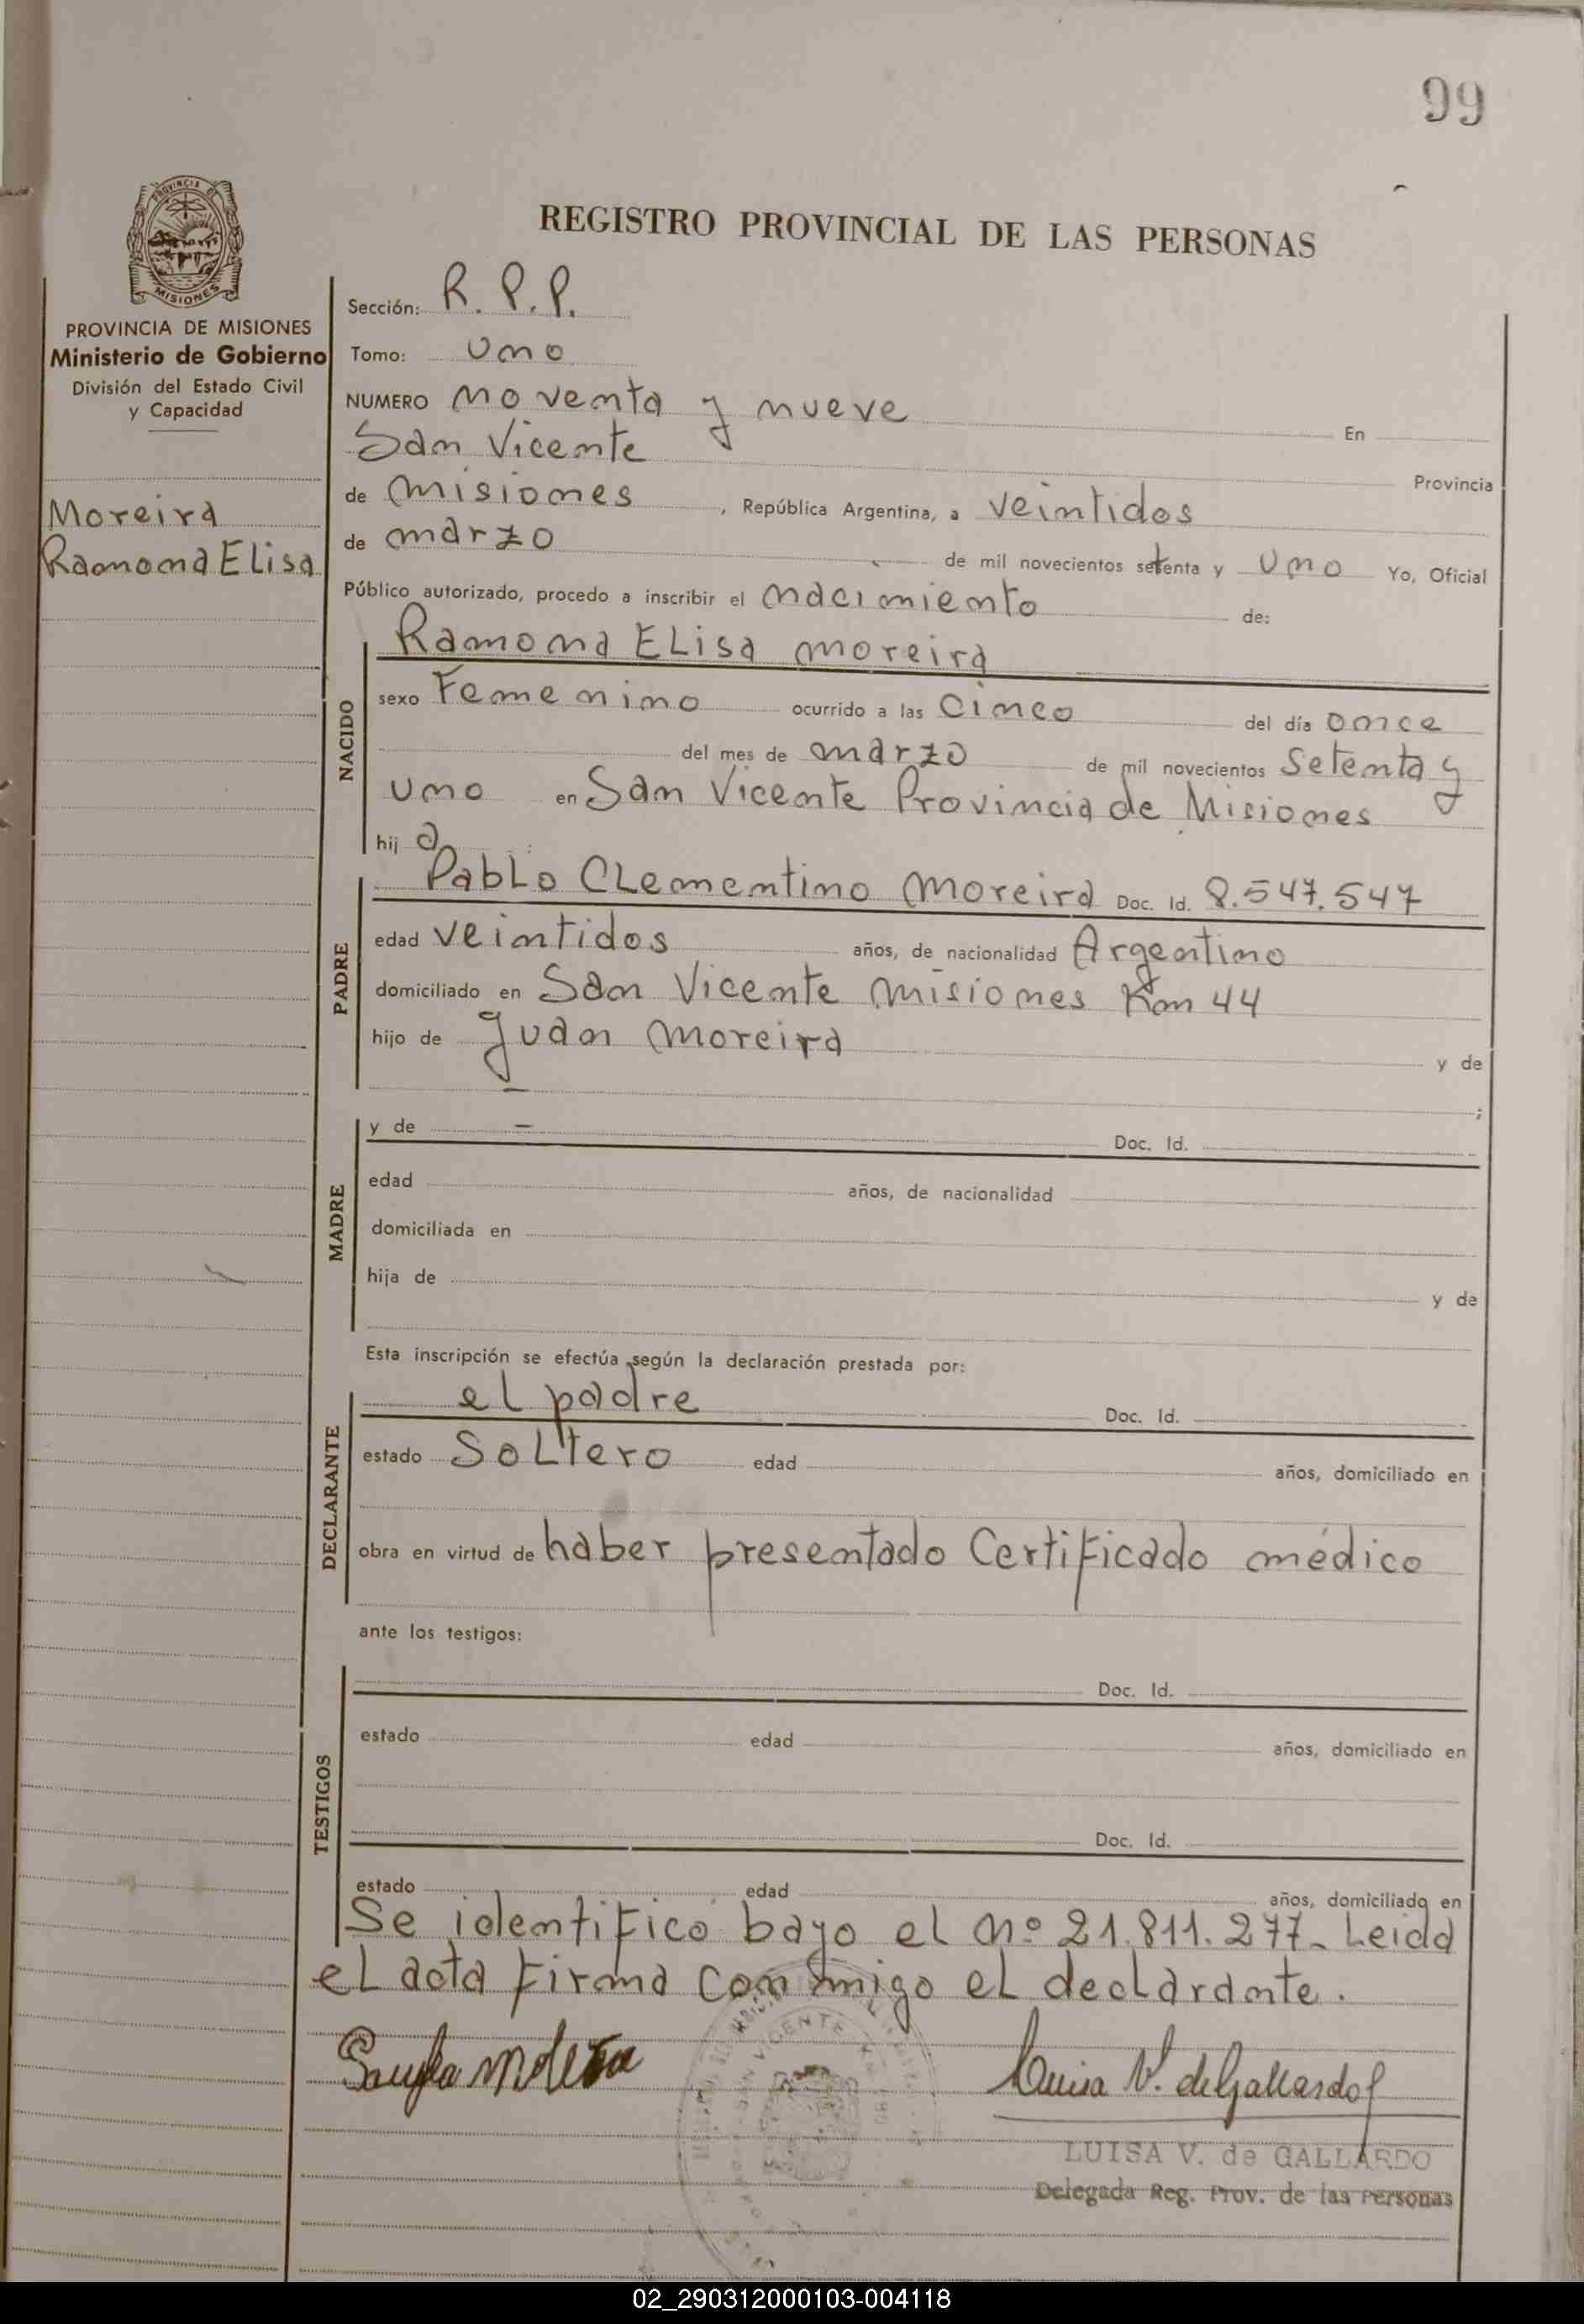 99
REGISTRO PROVINCIAL DE LAS PERSONAS
PROVINCIA DE
MISIONES
PROVINCIA DE MISIONES
Ministerio de Gobierno
División del Estado Civil
y Capacidad
Moreira
Ramona Elisa
Sección: R. P. P.
Tomo: Uno
NUMERO noventa y nueve En
San Vicente Provincia
de misiones, República Argentina, a veintidos
de marzo de mil novecientos setenta y uno Yo, Oficial
Público autorizado, procedo a inscribir el nacimiento de:
NACIDO
Ramona Elisa moreira
sexo Femenino ocurrido a las cinco del día once
del mes de marzo de mil novecientos setenta y
uno en San Vicente Provincia de Misiones
hij a
PADRE
Pablo Clementino moreira Doc. Id. 8.547.547
edad veintidos años, de nacionalidad Argentino
domiciliado en San Vicente misiones Km 44
hijo de Juan moreira y de
– ;
MADRE
y de – Doc. Id.
edad años, de nacionalidad
domiciliada en
hija de y de
Esta inscripción se efectúa según la declaración prestada por:
DECLARANTE
el padre Doc. Id.
estado Soltero edad años, domiciliado en
obra en virtud de haber presentado Certificado médico
ante los testigos:
TESTIGOS
Doc. Id.
estado edad años, domiciliado en
Doc. Id.
estado edad años, domiciliado en
Se identificó bajo el nº 21.811.277. Leida
el acta firma conmigo el declarante.
Luisa V. de Gallardo
LUISA V. de GALLARDO
Delegada Reg. Prov. de las Personas
02_290312000103-004118